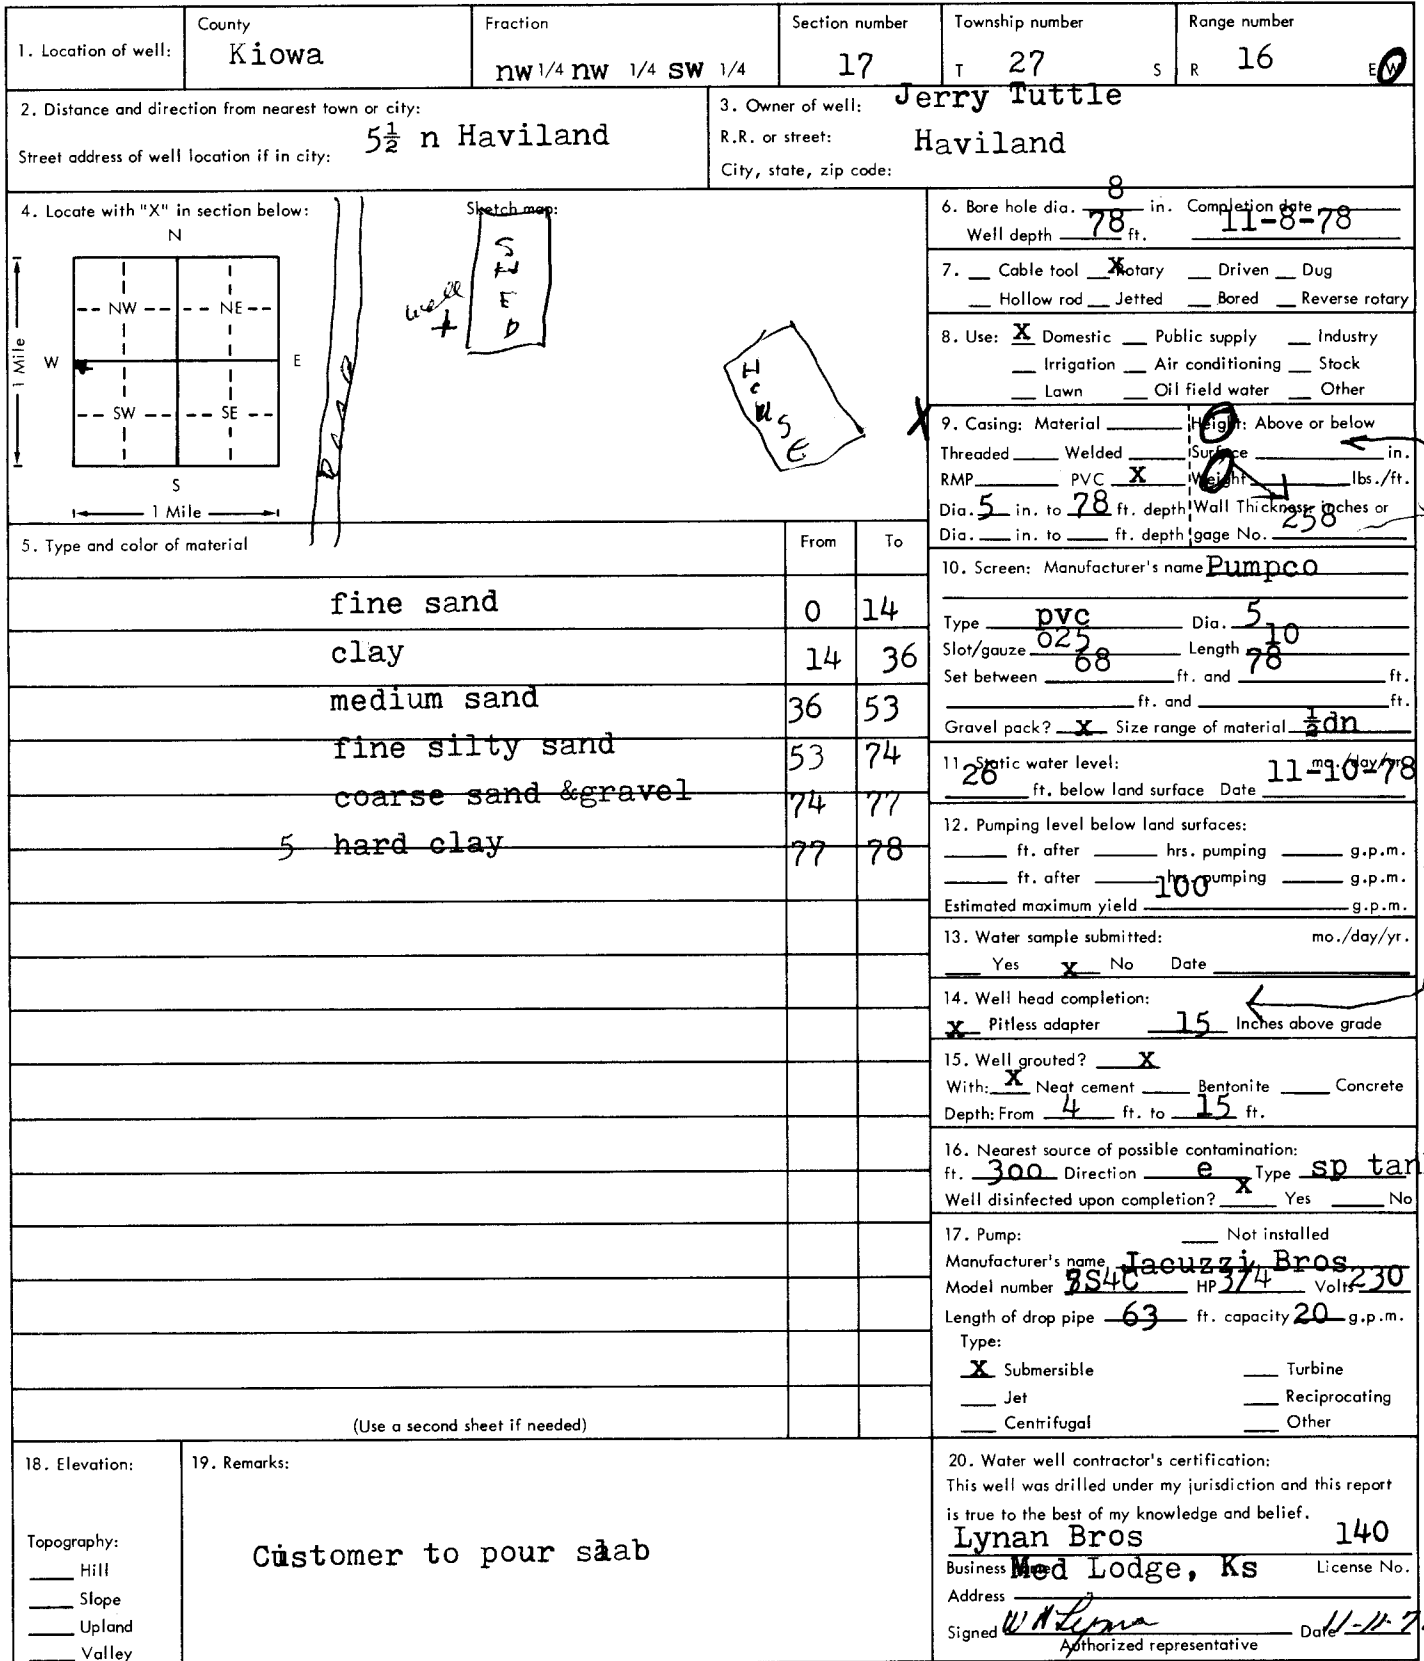 1. Location of well: County Kiowa Fraction nw 1/4 nw 1/4 sw 1/4 Section number 17 Township number T 27 S Range number R 16 E W
2. Distance and direction from nearest town or city: 5½ n Haviland
Street address of well location if in city:
3. Owner of well: Jerry Tuttle
R.R. or street: Haviland
City, state, zip code:
4. Locate with "X" in section below:
N
NW NE
W E
SW SE
S
1 Mile
1 Mile
Sketch map:
SHED
well
ROAD
HOUSE
5. Type and color of material From To
fine sand 0 14
clay 14 36
medium sand 36 53
fine silty sand 53 74
coarse sand &gravel 74 77
5 hard clay 77 78
(Use a second sheet if needed)
6. Bore hole dia. 8 in. Completion date
Well depth 78 ft. 11-8-78
7. Cable tool X Rotary Driven Dug
Hollow rod Jetted Bored Reverse rotary
8. Use: X Domestic Public supply Industry
Irrigation Air conditioning Stock
Lawn Oil field water Other
X
9. Casing: Material Height: Above or below
Threaded Welded Surface in.
RMP PVC X Weight lbs./ft.
Dia. 5 in. to 78 ft. depth Wall Thickness: inches or
Dia. in. to ft. depth gage No. 258
10. Screen: Manufacturer's name Pumpco
Type pvc Dia. 5
Slot/gauze 025 Length 10
Set between 68 ft. and 78 ft.
ft. and ft.
Gravel pack? X Size range of material ½dn
11. Static water level: mo./day/yr.
26 ft. below land surface Date 11-10-78
12. Pumping level below land surfaces:
ft. after hrs. pumping g.p.m.
ft. after hrs. pumping g.p.m.
Estimated maximum yield 100 g.p.m.
13. Water sample submitted: mo./day/yr.
Yes X No Date
14. Well head completion:
X Pitless adapter 15 Inches above grade
15. Well grouted? X
With: X Neat cement Bentonite Concrete
Depth: From 4 ft. to 15 ft.
16. Nearest source of possible contamination:
ft. 300 Direction e Type sp tan
Well disinfected upon completion? X Yes No
17. Pump: Not installed
Manufacturer's name Jacuzzi Bros
Model number S4C HP 3/4 Volts 230
Length of drop pipe 63 ft. capacity 20 g.p.m.
Type:
X Submersible Turbine
Jet Reciprocating
Centrifugal Other
18. Elevation:
Topography:
Hill
Slope
Upland
Valley
19. Remarks:
Customer to pour slab
20. Water well contractor's certification:
This well was drilled under my jurisdiction and this report
is true to the best of my knowledge and belief.
Lynan Bros 140
Business Med Lodge, Ks License No.
Address
Signed Date 11-11-7
Authorized representative